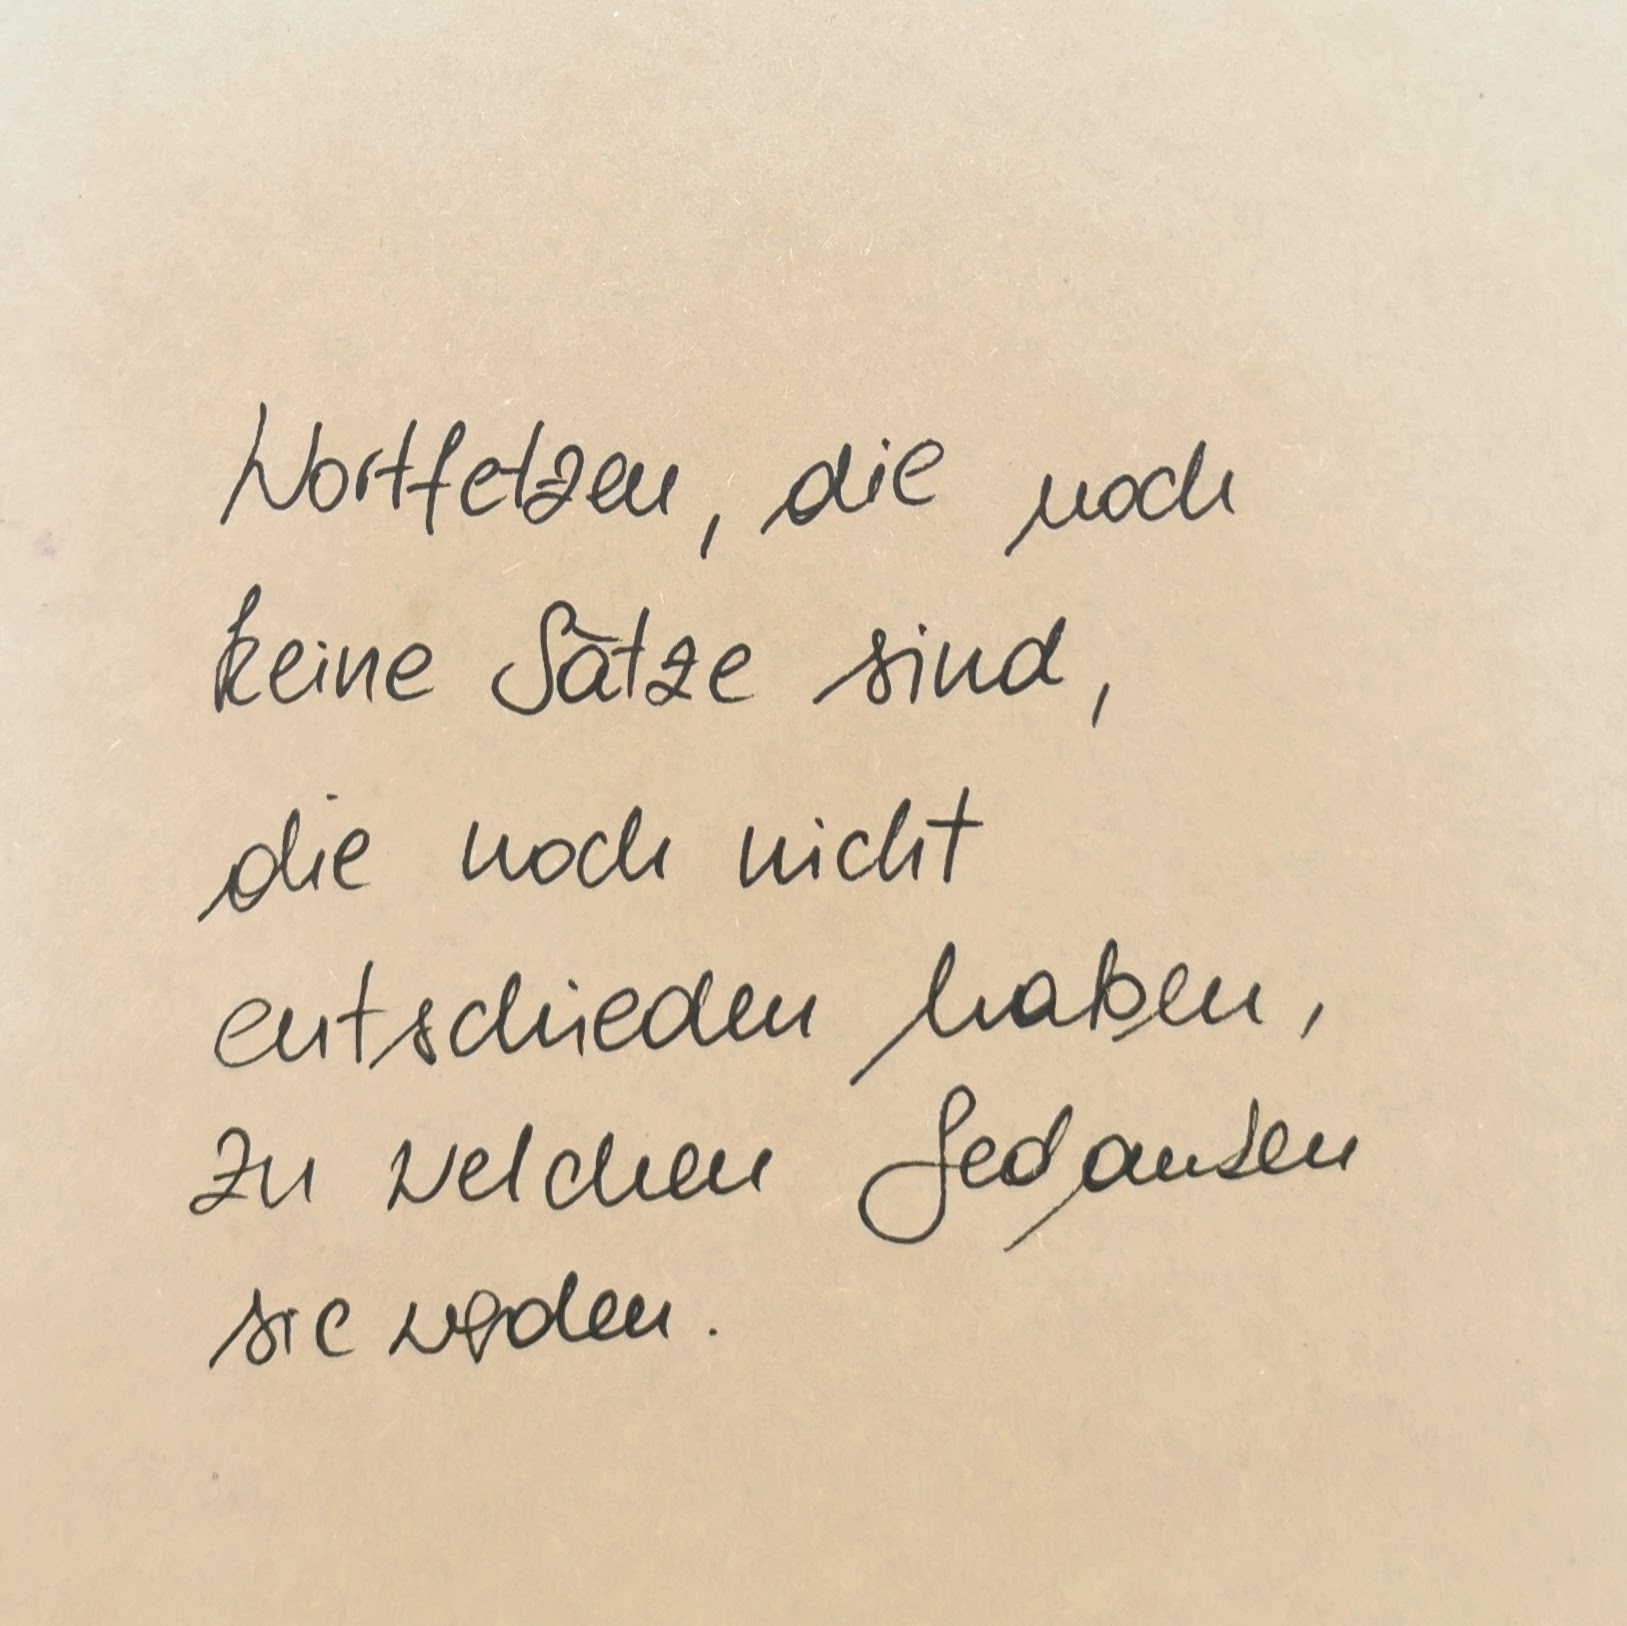 Wortfetzen, die noch
keine Sätze sind,
die noch nicht
entschieden haben,
zu welchen Gedanken
sie werden.